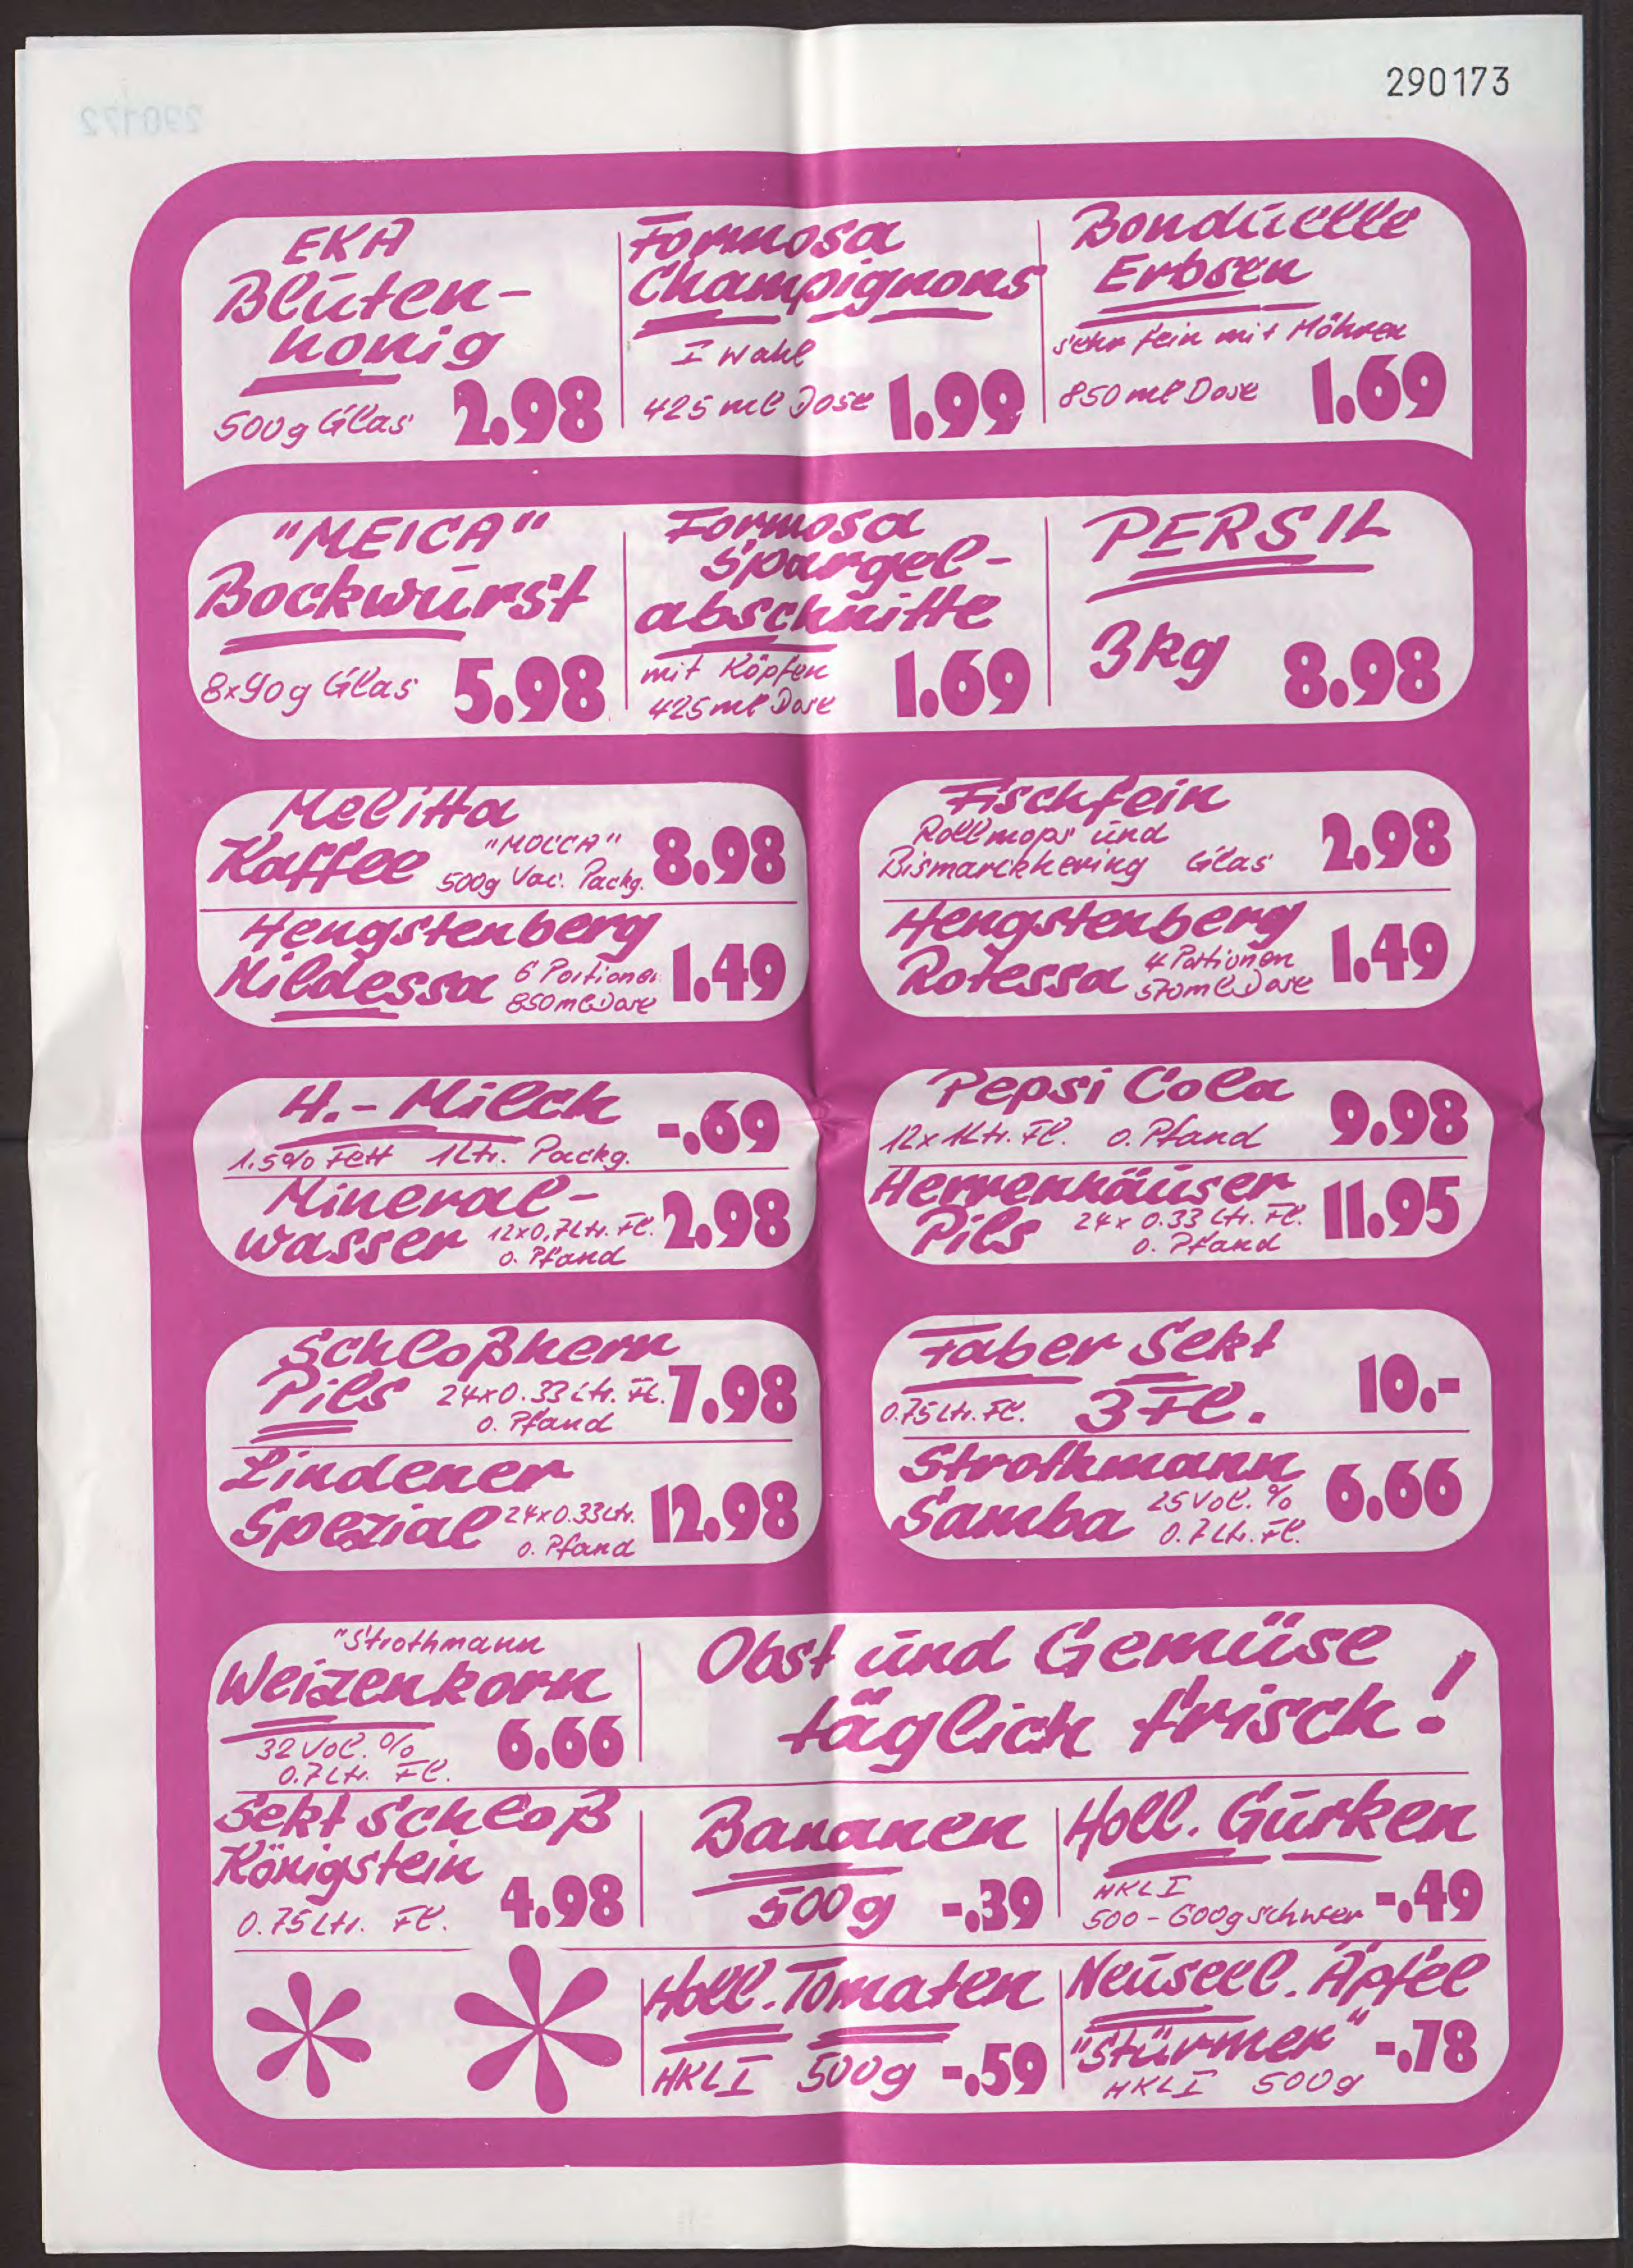 290173
290172
EKA
Blüten-
honig
500g Glas 2.98
Formosa
Champignons
I Wahl
425 ml Dose 1.99
Bonduelle
Erbsen
sehr fein mit Möhren
850 ml Dose 1.69
"MEICA"
Bockwurst
8x90g Glas 5.98
Formosa
Spargel-
abschnitte
mit Köpfen
425 ml Dose 1.69
PERSIL
3kg 8.98
Melitta
Kaffee "MOCCA" 8.98
500g Vac. Packg.
Hengstenberg
Mildessa 6 Portionen 1.49
850ml Dose
Fischfein
Rollmops und
Bismarckhering Glas 2.98
Hengstenberg
Rotessa 4 Portionen 1.49
570ml Dose
H.-Milch -.69
1.5% Fett 1Ltr. Packg.
Mineral-
wasser 12x0,7Ltr. Fl. 2.98
o. Pfand
Pepsi Cola 9.98
12x1Ltr. Fl. o. Pfand
Herrenhäuser
Pils 24x0.33 Ltr. Fl. 11.95
o. Pfand
Schloßherr
Pils 24x0.33 Ltr. Fl. 7.98
o. Pfand
Lindener
Spezial 24x0.33Ltr. 12.98
o. Pfand
Faber Sekt
0.75Ltr. Fl. 3 Fl. 10.-
Strothmann
Samba 25 Vol. % 6.66
0.7 Ltr. Fl.
"Strothmann
Weizenkorn
32 Vol. % 6.66
0.7 Ltr. Fl.
Obst und Gemüse
täglich frisch!
Sekt Schloß
Königstein
0.75 Ltr. Fl. 4.98
Bananen
500g -.39
Holl. Gurken
HKL I
500-600g schwer -.49
Holl. Tomaten
HKL I 500g -.59
Neuseel. Äpfel
"Stürmer" -.78
HKL I 500g